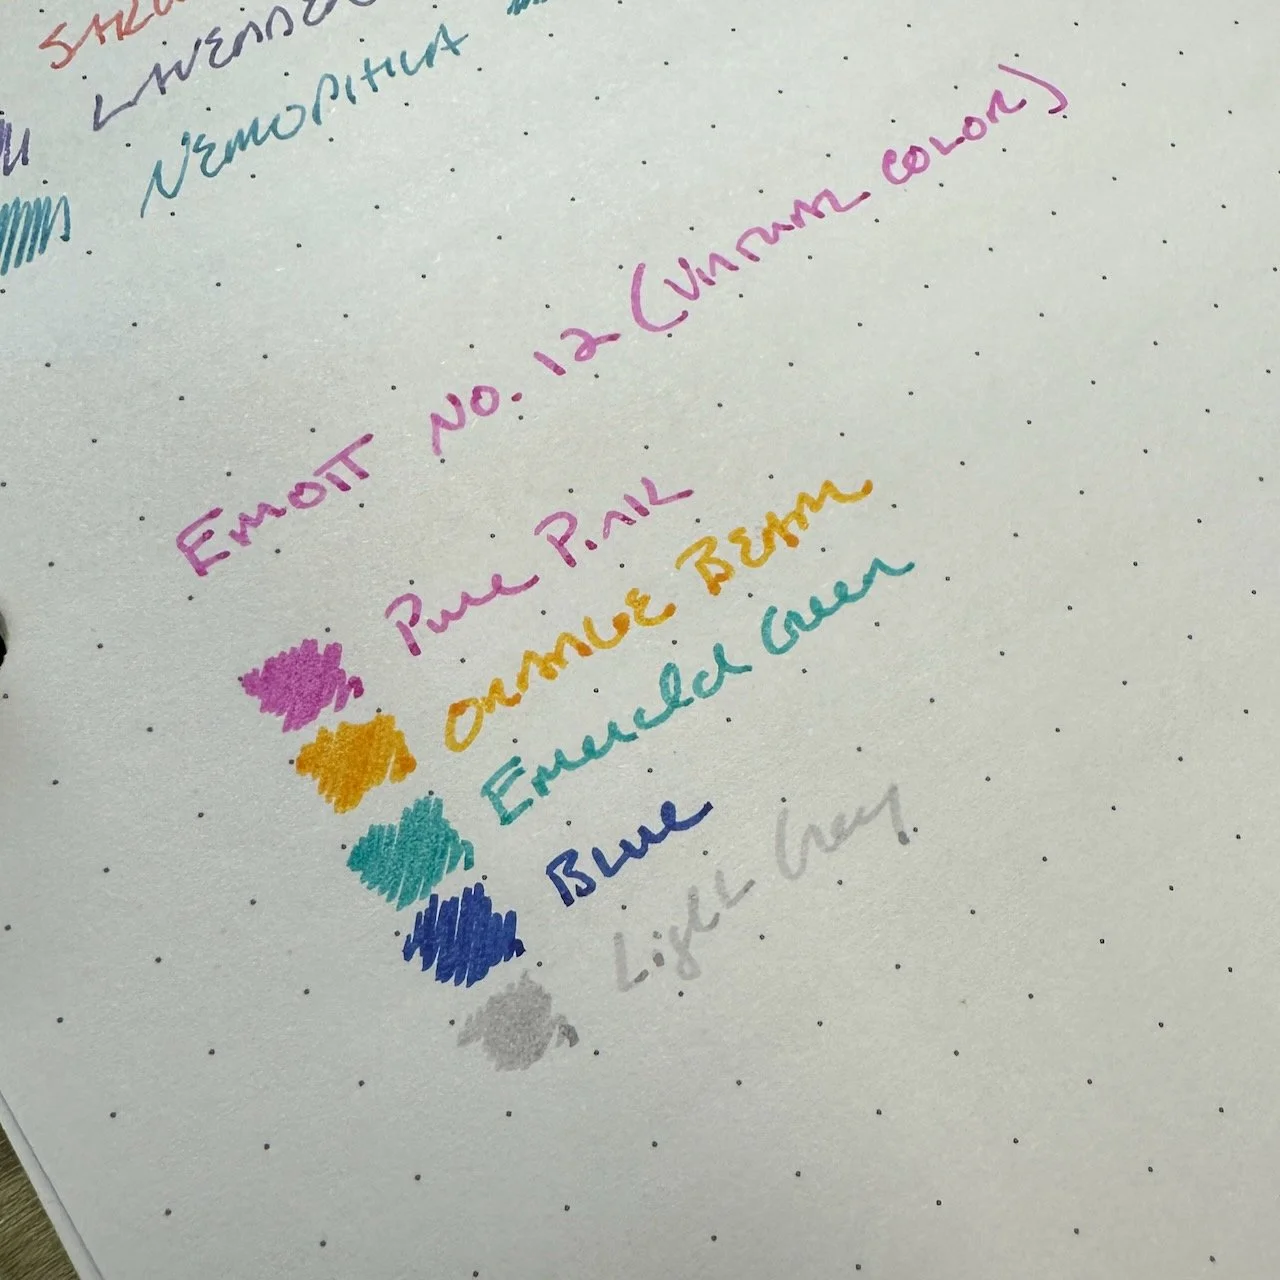 LAVENDER
NEMOPHILA
EMOTT NO. 12 (VIRTUAL COLOR)
Pure Pink
ORANGE BEAM
Emerald Green
BLUE
Light Grey